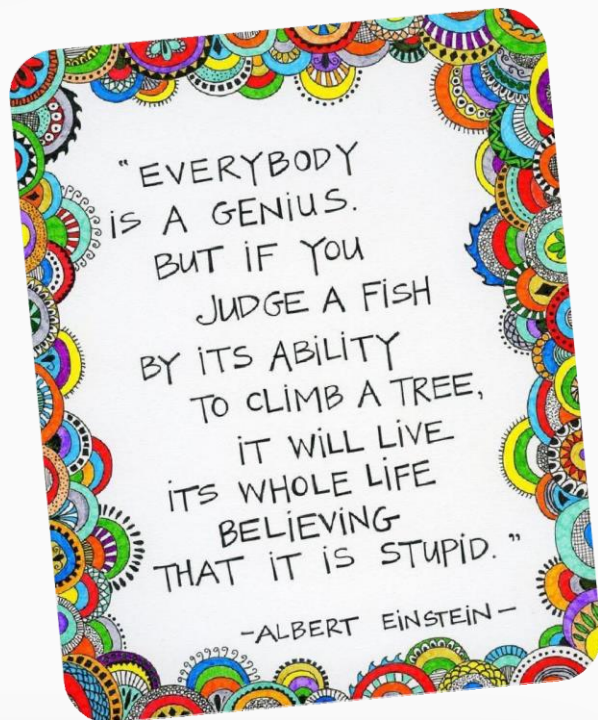 “EVERYBODY
iS A GENiUS.
BUT iF YOU
JUDGE A FiSH
BY iTS ABiLiTY
TO CLiMB A TREE,
iT WiLL LiVE
iTS WHOLE LiFE
BELiEViNG
THAT iT iS STUPiD.”
-ALBERT EiNSTEiN-